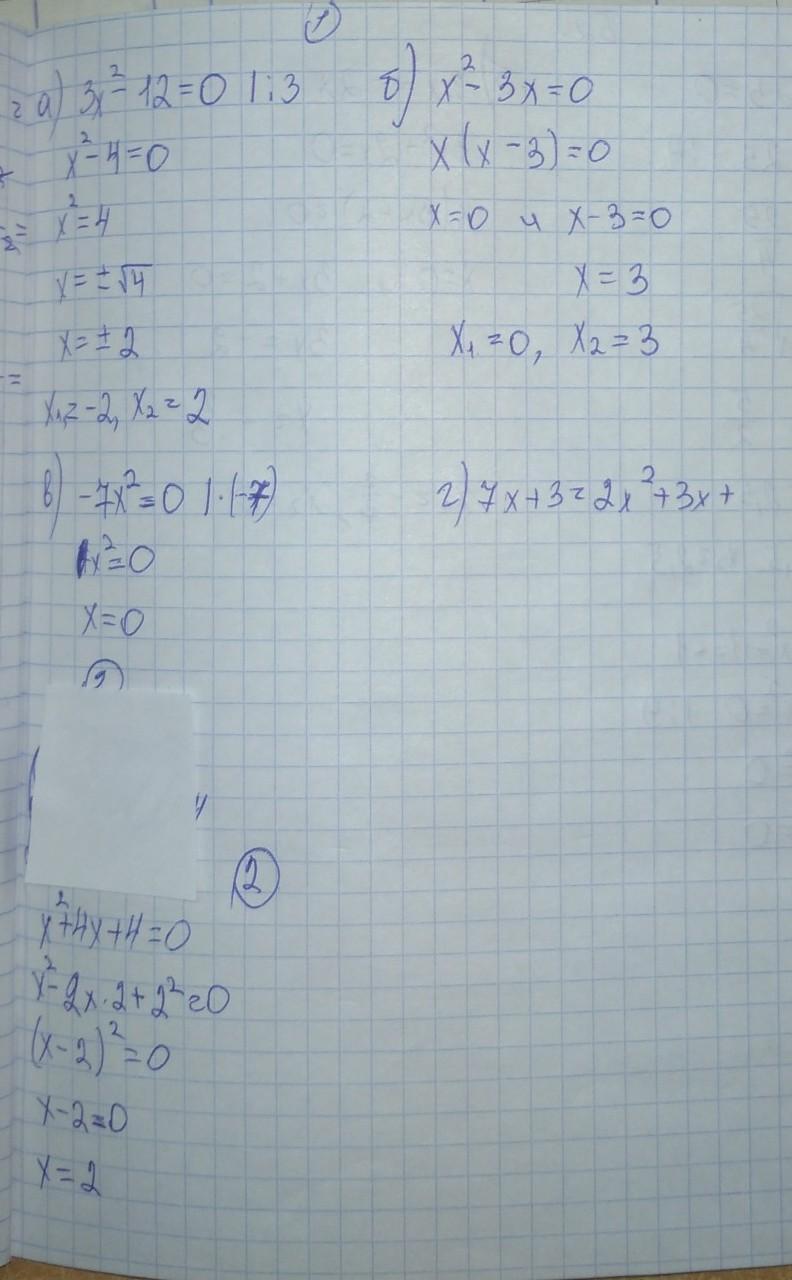 1
а) 3x² - 12 = 0 | : 3
x² - 4 = 0
x² = 4
x = ±√4
x = ± 2
x₁ = -2, x₂ = 2
б) x² - 3x = 0
x(x - 3) = 0
x = 0 и x - 3 = 0
x = 3
x₁ = 0, x₂ = 3
в) -7x² = 0 | · (-7)
x² = 0
x = 0
г) 7x + 3 = 2x² + 3x +
2
x² + 4x + 4 = 0
x² - 2x · 2 + 2² = 0
(x - 2)² = 0
x - 2 = 0
x = 2